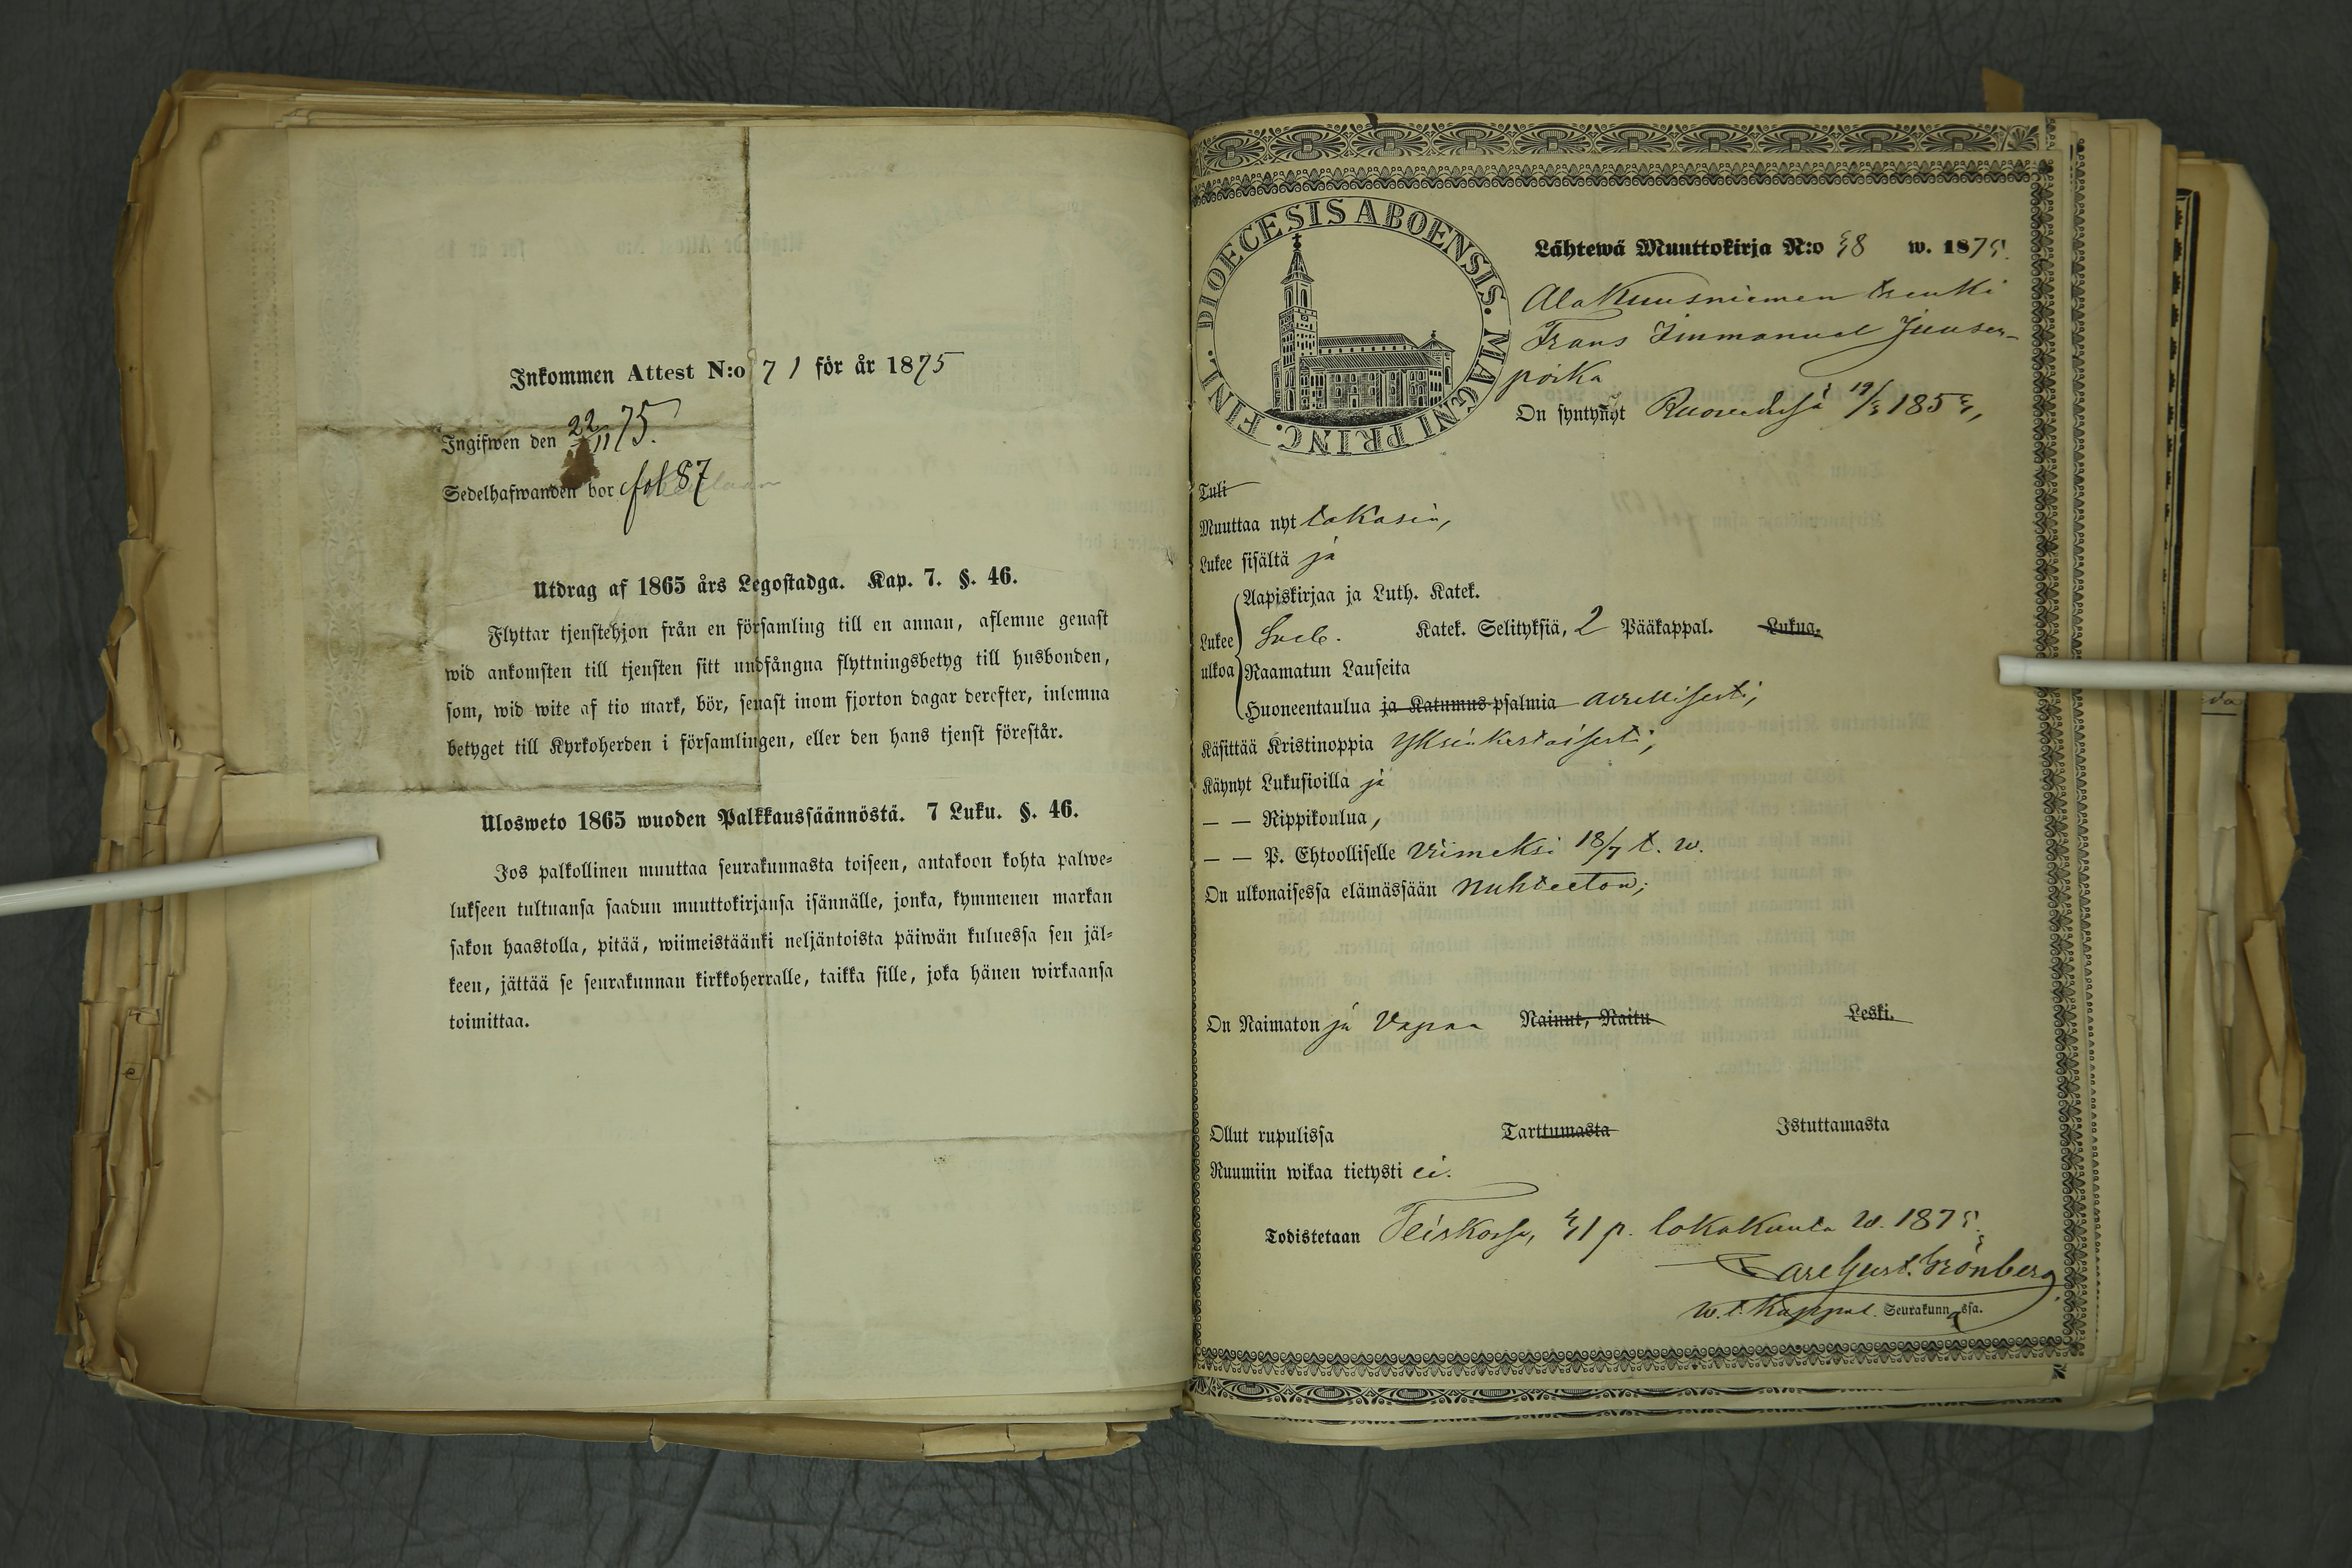 Inkommen Attest N:o 71 för år 1875
Ingifwen den 22/11 75.
Sedelhafwanden bor fol 87
Utdrag af 1865 års Legostadga. Kap. 7. §. 46.
Flyttar tjenstehjon från en församling till en annan, aflemne genast
wid ankomsten till tjensten sitt undfångna flyttningsbetyg till husbonden,
som, wid wite af tio mark, bör, senast inom fjorton dagar derefter, inlemna
betyget till Kyrkoherden i församlingen, eller den hans tjenst förestår.
Ulosweto 1865 wuoden Palkkaussäännöstä. 7 Luku. §. 46.
Jos palkollinen muuttaa seurakunnasta toiseen, antakoon kohta palwe-
lukseen tultuansa saadun muuttokirjansa isännälle, jonka, kymmenen markan
sakon haastolla, pitää, wiimeistäänki neljäntoista päiwän kuluessa sen jäl-
keen, jättää se seurakunnan kirkkoherralle, taikka sille, joka hänen wirkaansa
toimittaa.
DIOECESIS ABOENSIS. MAGNI PRINC. FINL.
Lähtewä Muuttokirja N:o 38 w. 1875.
AlaKuusniemen trenki
Frans Immanuel Juusen-
poika
On syntynyt Ruovedessä 19/3 1853,
Tuli
Muuttaa nyt takasin,
Lukee sisältä ja
Aapiskirjaa ja Luth. Katek.
Lukee Sveb. Katek. Selityksiä, 2 Pääkappal. Lukua.
ulkoa Raamatun Lauseita
Huoneentaulua ja Katumus-psalmia awullisesti,
Käsittää Kristinoppia Yksinkertaisesti,
Käynyt Lukusioilla ja
— — Rippikoulua,
— — P. Ehtoolliselle Viimeksi 18/7 t. w.
On ulkonaisessa elämässään nuhteeton;
On Naimaton ja Vapaa Nainut, Naitu Leski.
Ollut rupulissa Tarttumasta Istuttamasta
Ruumiin wikaa tietysti ei.
Todistetaan Teiskossa, 31 p. lokakuuta w. 1875.
Carl Gust. Grönberg
w. t. Kappal. Seurakunnassa.